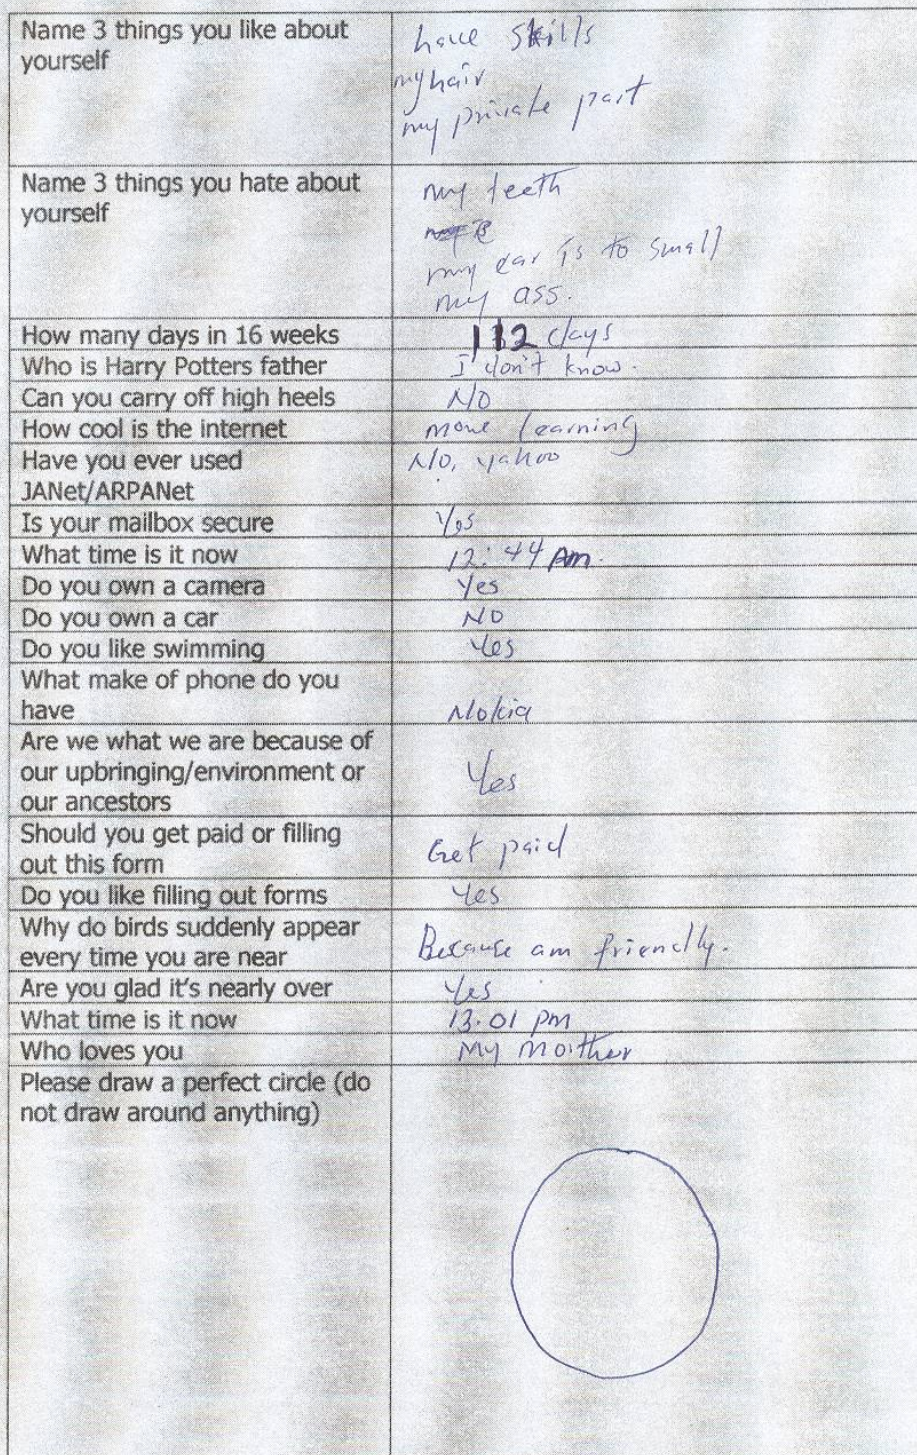 Name 3 things you like about
yourself
have skills
my hair
my private part
Name 3 things you hate about
yourself
my teeth
my ear is to small
my ass.
How many days in 16 weeks
112 days
Who is Harry Potters father
I don't know.
Can you carry off high heels
No
How cool is the internet
more learning
Have you ever used
JANet/ARPANet
No, yahoo
Is your mailbox secure
Yes
What time is it now
12:44 Am.
Do you own a camera
Yes
Do you own a car
NO
Do you like swimming
Yes
What make of phone do you
have
Nokia
Are we what we are because of
our upbringing/environment or
our ancestors
Yes
Should you get paid or filling
out this form
Get paid
Do you like filling out forms
Yes
Why do birds suddenly appear
every time you are near
Because am friendly.
Are you glad it's nearly over
Yes
What time is it now
13.01 pm
Who loves you
My moither
Please draw a perfect circle (do
not draw around anything)